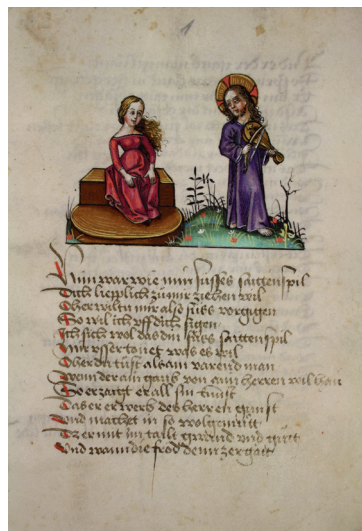 1
Nim war wie min susses saittenspil
Dich liepplich zu mir ziehen wil
Her wiltu mir also suss vorgigen
So wil ich vff dich sigen
Ich sich wol das din suss saittenspil
Mir vsser tonet was es wil
Her du tust als ain varend man
Wan der ain gaub von aim herren wil han
So erzaigt er all sin kunst
Das er erwerb des herren gunst
Vnd machet in so wolgemut
Dz er mit im tailt gwand vnd gut
Vnd wann die frod denn zergatt